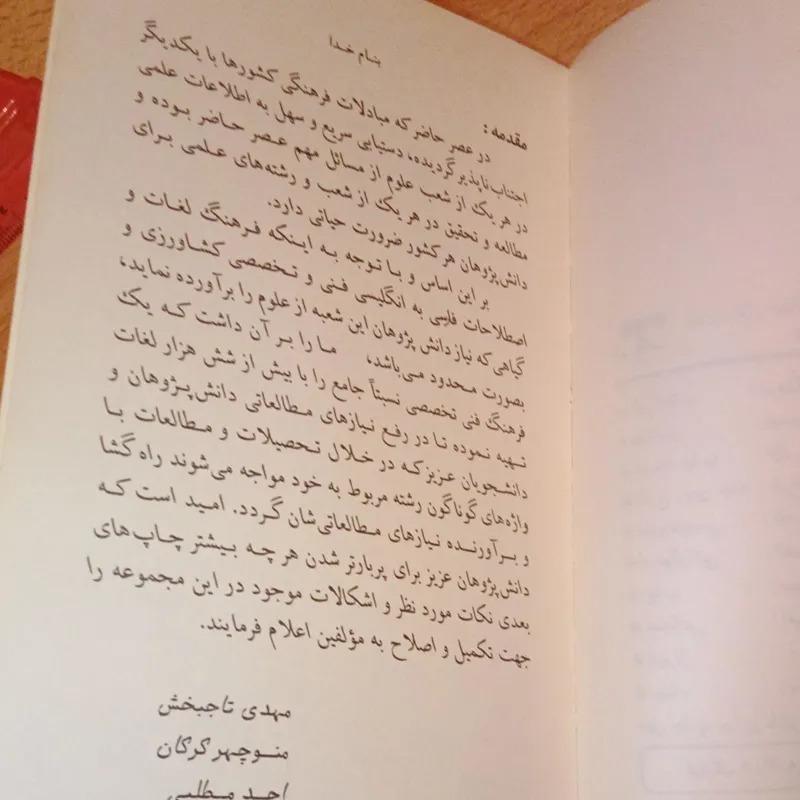 بنام خدا
مقدمه:
در عصر حاضر که مبادلات فرهنگی کشورها با یکدیگر
اجتناب‌ناپذیر گردیده، دستیابی سریع و سهل به اطلاعات علمی
در هر یک از شعب علوم از مسائل مهم عصر حاضر بوده و
مطالعه و تحقیق در هر یک از شعب و رشته‌های علمی برای
دانش‌پژوهان هر کشور ضرورت حیاتی دارد.
بر این اساس و با توجه به اینکه فرهنگ لغات و
اصطلاحات فارسی به انگلیسی فنی و تخصصی کشاورزی و
گیاهی که نیاز دانش پژوهان این شعبه از علوم را برآورده نماید،
بصورت محدود می‌باشد، ما را بر آن داشت که یک
فرهنگ فنی تخصصی نسبتاً جامع را با بیش از شش هزار لغات
تهیه نموده تا در رفع نیازهای مطالعاتی دانش‌پژوهان و
دانشجویان عزیز که در خلال تحصیلات و مطالعات با
واژه‌های گوناگون رشته مربوط به خود مواجه می‌شوند راه گشا
و برآورنده نیازهای مطالعاتی‌شان گردد. امید است که
دانش‌پژوهان عزیز برای پربارتر شدن هر چه بیشتر چاپ‌های
بعدی نکات مورد نظر و اشکالات موجود در این مجموعه را
جهت تکمیل و اصلاح به مؤلفین اعلام فرمایند.
مهدی تاجبخش
منوچهر کرکان
احد مطلبی